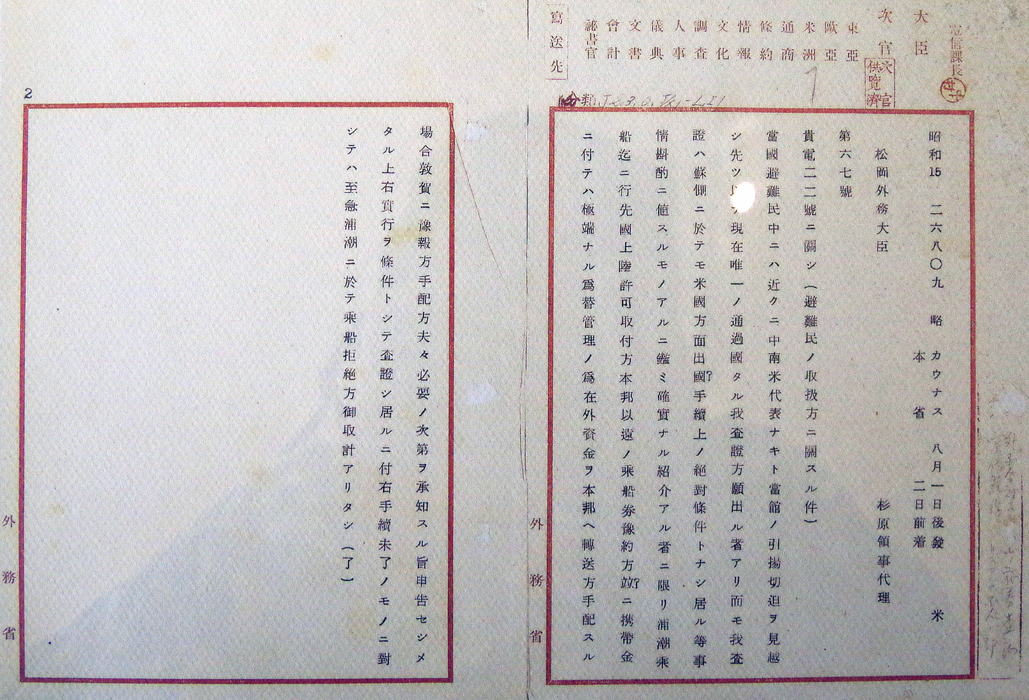 電信課長
大臣
次官
次官供覽濟
東亞
歐亞
米洲
通商
條約
情報
文化
調査
人事
儀典
文書
會計
祕書官
寫送先
分類
昭和15 二六八〇九 略 カウナス 八月一日後發 米
本省 二日前着
松岡外務大臣 杉原領事代理
第六七號
貴電二二號ニ關シ(避難民ノ取扱方ニ關スル件)
當國避難民中ニハ近クニ中南米代表ナキト當館ノ引揚切迫ヲ見越
シ先ツ 現在唯一ノ通過國タル我査證方願出ル者アリ而モ我査
證ハ蘇側ニ於テモ米國方面出國?手續上ノ絶對條件トナシ居ル等事
情斟酌ニ値スルモノアルニ鑑ミ確實ナル紹介アル者ニ限リ浦潮乘
船迄ニ行先國上陸許可取付方本邦以遠ノ乘船券豫約方竝?ニ携帶金
ニ付テハ極端ナル爲替管理ノ爲在外資金ヲ本邦ヘ轉送方手配スル
外務省
2
場合敦賀ニ豫報方手配方夫々必要ノ次第ヲ承知スル旨申告セシメ
タル上右實行ヲ條件トシテ査證シ居ルニ付右手續未了ノモノニ對
シテハ至急浦潮ニ於テ乘船拒絶方御取計アリタシ(了)
外務省